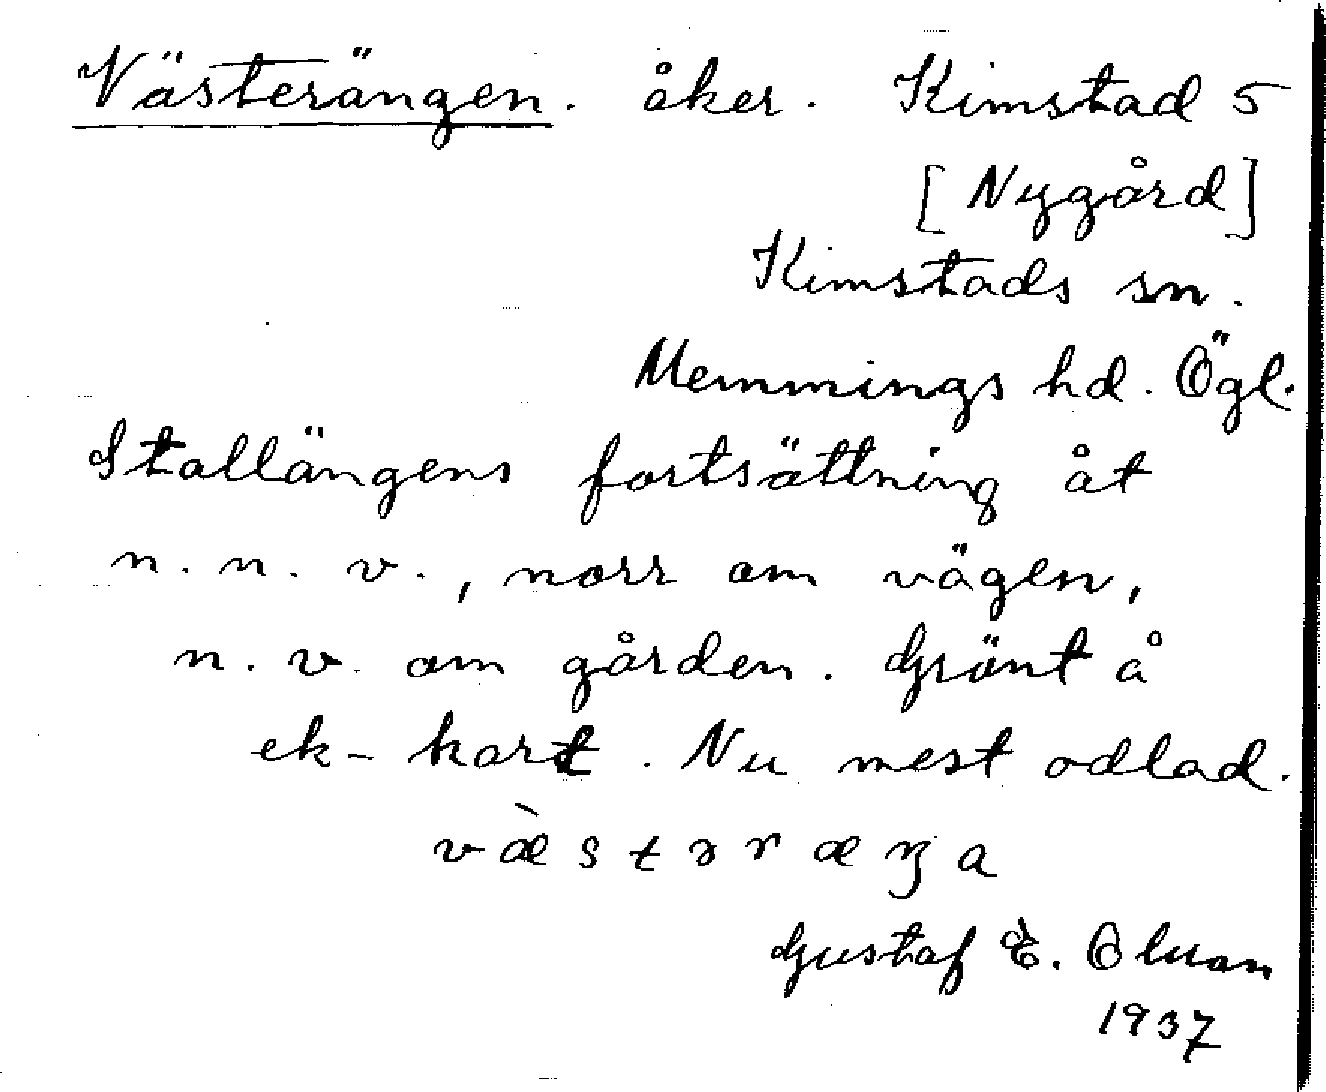 Västerängen. åker. Kimstad 5
[Nygård]
Kimstads sn.
Memmings hd. Ögl.
Stallängens fortsättning åt
n. n. v., norr om vägen,
n. v. om gården. Grönt å
ek-kart. Nu mest odlad.
væ̀stəræŋa
Gustaf E.
1937